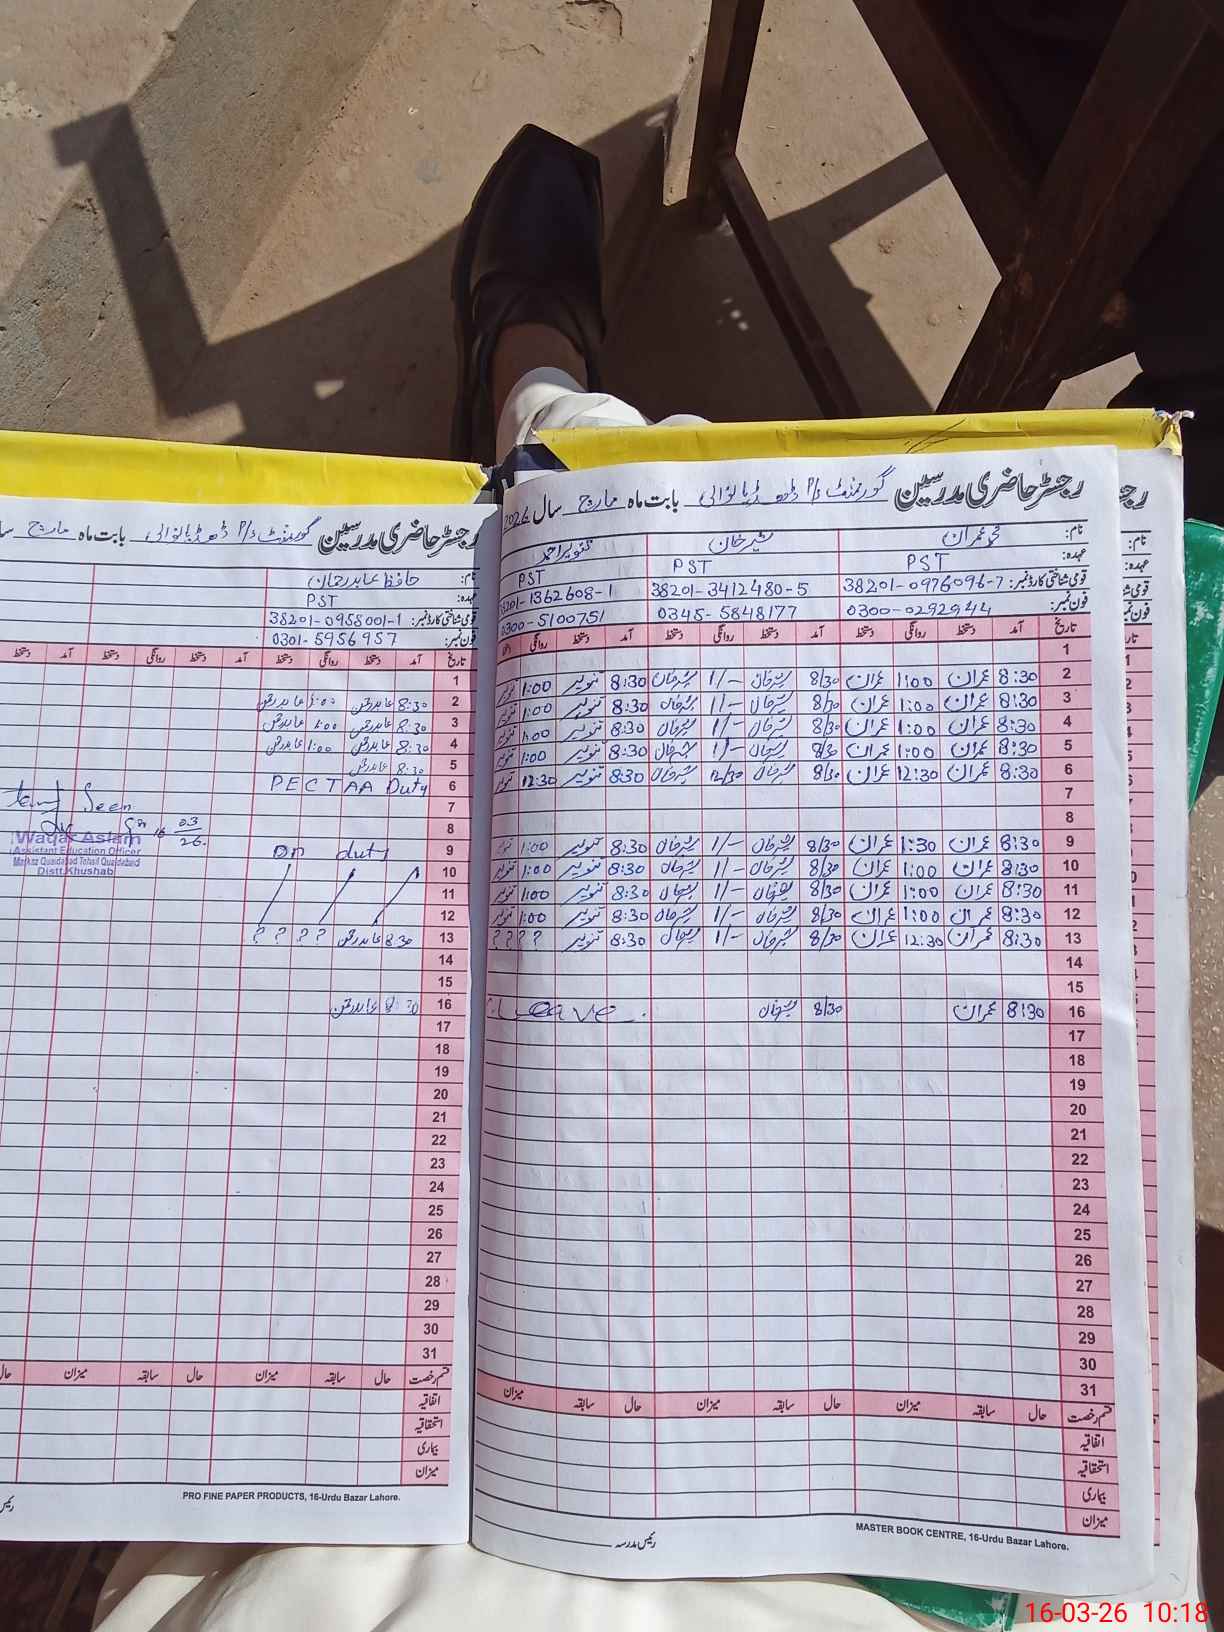 رجسٹر حاضری مدرسین گورنمنٹ بابت ماہ مارچ سال 2026
نام: محمد عمران شیر خان تنویر احمد
عہدہ: PST PST PST
قومی شناختی کارڈ نمبر: 38201-0976096-7 38201-3412480-5 38201-1362608-1
فون نمبر: 0300-0292944 0345-5848177 0300-5100751
تاریخ آمد دستخط روانگی دستخط آمد دستخط روانگی دستخط آمد دستخط روانگی
1
2 8:30 عمران 1:00 عمران 8/30 شیر خان 1/- شیر خان 8:30 تنویر 1:00 تنویر
3 8:30 عمران 1:00 عمران 8/30 شیر خان 1/- شیر خان 8:30 تنویر 1:00 تنویر
4 8:30 عمران 1:00 عمران 8/30 شیر خان 1/- شیر خان 8:30 تنویر 1:00 تنویر
5 8:30 عمران 1:00 عمران 8/30 شیر خان 1/- شیر خان 8:30 تنویر 1:00 تنویر
6 8:30 عمران 12:30 عمران 8/30 شیر خان 12/30 شیر خان 8:30 تنویر 12:30 تنویر
7
8
9 8:30 عمران 1:30 عمران 8/30 شیر خان 1/- شیر خان 8:30 تنویر 1:00 تنویر
10 8:30 عمران 1:00 عمران 8/30 شیر خان 1/- شیر خان 8:30 تنویر 1:00 تنویر
11 8:30 عمران 1:00 عمران 8/30 شیر خان 1/- شیر خان 8:30 تنویر 1:00 تنویر
12 8:30 عمران 1:00 عمران 8/30 شیر خان 1/- شیر خان 8:30 تنویر 1:00 تنویر
13 8:30 عمران 12:30 عمران 8/30 شیر خان 1/- شیر خان 8:30 تنویر ? ? ? ?
14
15
16 8:30 عمران 8/30 شیر خان Leave
17
18
19
20
21
22
23
24
25
26
27
28
29
30
31
قسم رخصت حال سابقہ میزان حال سابقہ میزان حال سابقہ میزان
اتفاقیہ
استحقاقیہ
بیماری
میزان
رئیس مدرسہ
MASTER BOOK CENTRE, 16-Urdu Bazar Lahore.
رجسٹر حاضری مدرسین گورنمنٹ بابت ماہ مارچ
نام: حافظ عابد رحمان
عہدہ: PST
قومی شناختی کارڈ نمبر: 38201-0958001-1
فون نمبر: 0301-5956957
تاریخ آمد دستخط روانگی دستخط آمد دستخط روانگی دستخط آمد دستخط
1
2 8:30 عابد رحمن 1:00 عابد رحمن
3 8:30 عابد رحمن 1:00 عابد رحمن
4 8:30 عابد رحمن 1:00 عابد رحمن
5 8:30 عابد رحمن
6 PECTAA Duty
7
8
Seen
16 03/26
Waqar Aslam
Assistant Education Officer
Markaz Quaidabad Tehsil Quaidabad
Distt Khushab
9 On duty
10
11
12
13 8:30 عابد رحمن ? ? ? ?
14
15
16 8:30 عابد رحمن
17
18
19
20
21
22
23
24
25
26
27
28
29
30
31
قسم رخصت حال سابقہ میزان حال سابقہ میزان حال
اتفاقیہ
استحقاقیہ
بیماری
میزان
PRO FINE PAPER PRODUCTS, 16-Urdu Bazar Lahore.
16-03-26 10:18